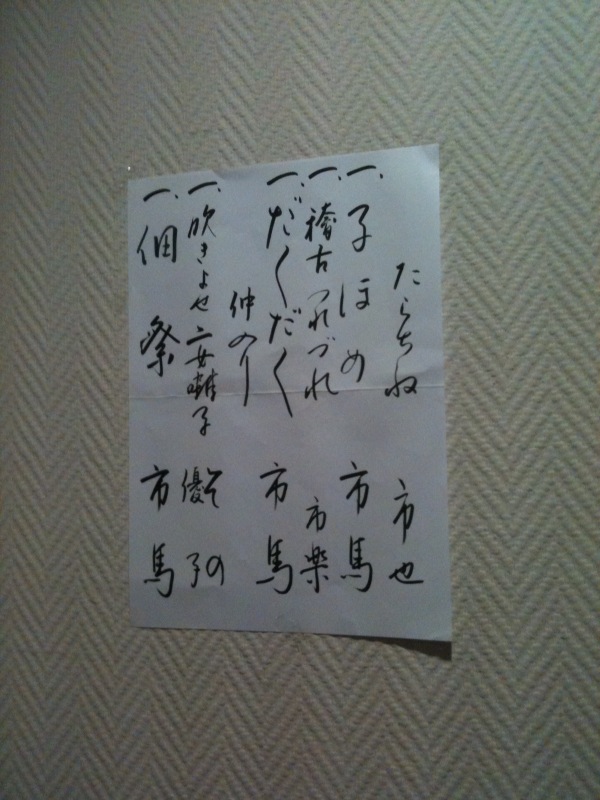 たらちね 市也
一、子ほめ 市馬
一、稽古つれづれ 市楽
一、だくだく 市馬
仲入り
一、吹きよせ二女囃子 その 優子
一、佃祭 市馬